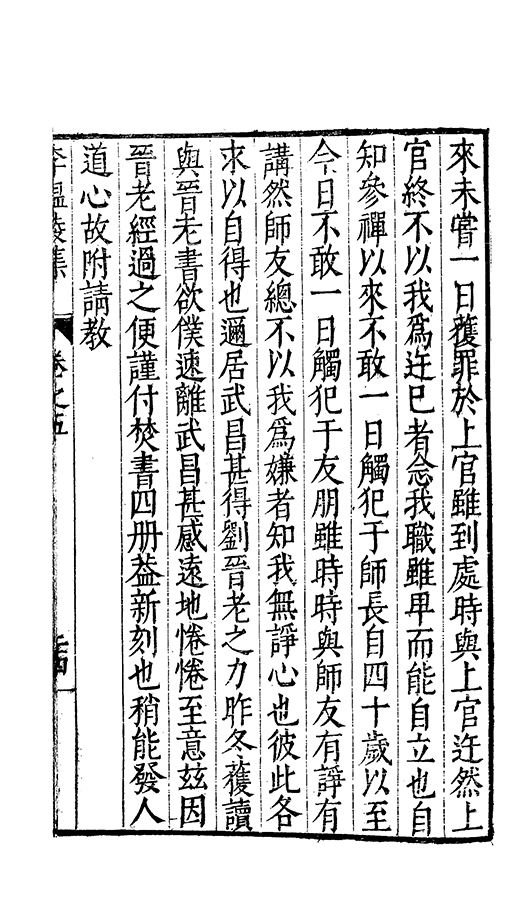 來未嘗一日獲罪於上官雖到處時與上官迕然上
官終不以我爲迕已者念我職雖卑而能自立也自
知參禪以來不敢一日觸犯于師長自四十歲以至
今日不敢一日觸犯于友朋雖時時與師友有諍有
講然師友總不以我爲嫌者知我無諍心也彼此各
求以自得也邇居武昌甚得劉晉老之力昨冬獲讀
與晉老書欲僕速離武昌甚感遠地惓惓至意玆因
晉老經過之便謹付焚書四册葢新刻也稍能發人
道心故附請教
李溫陵集 卷之五